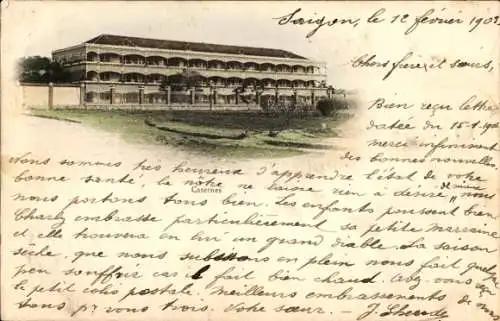 Saigon, le 12 février 190
Chers frère et sœurs,
Bien reçu lettre
datée du 15-1
merci infiniment
des bonnes nouvelles,
Nous sommes très heureux d'apprendre l'état de votre
bonne santé, la nôtre ne laisse rien à désirer, nous
de même
nous portons tous bien. Les enfants poussent bien
Casernes
Charly embrasse particulièrement sa petite marraine
et elle trouvera en lui un grand diable. La saison
sèche, que nous subissons en plein nous fait quelque
peu souffrir car il fait bien chaud. Avez-vous
le petit colis postal. Meilleurs embrassements de
tous pr vous trois. Votre sœur. — J.